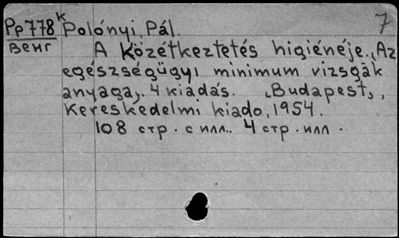 7
Рр778к Polónyi, Pál.
Венг
A Közétkeztetés higiénéje. „Az
egészségügyi minimum vizsgák
anyaga„. 4 kiadás. „Budapest„,
Kereskedelmi kiado, 1954.
108 стр. с илл.. 4 стр. илл.